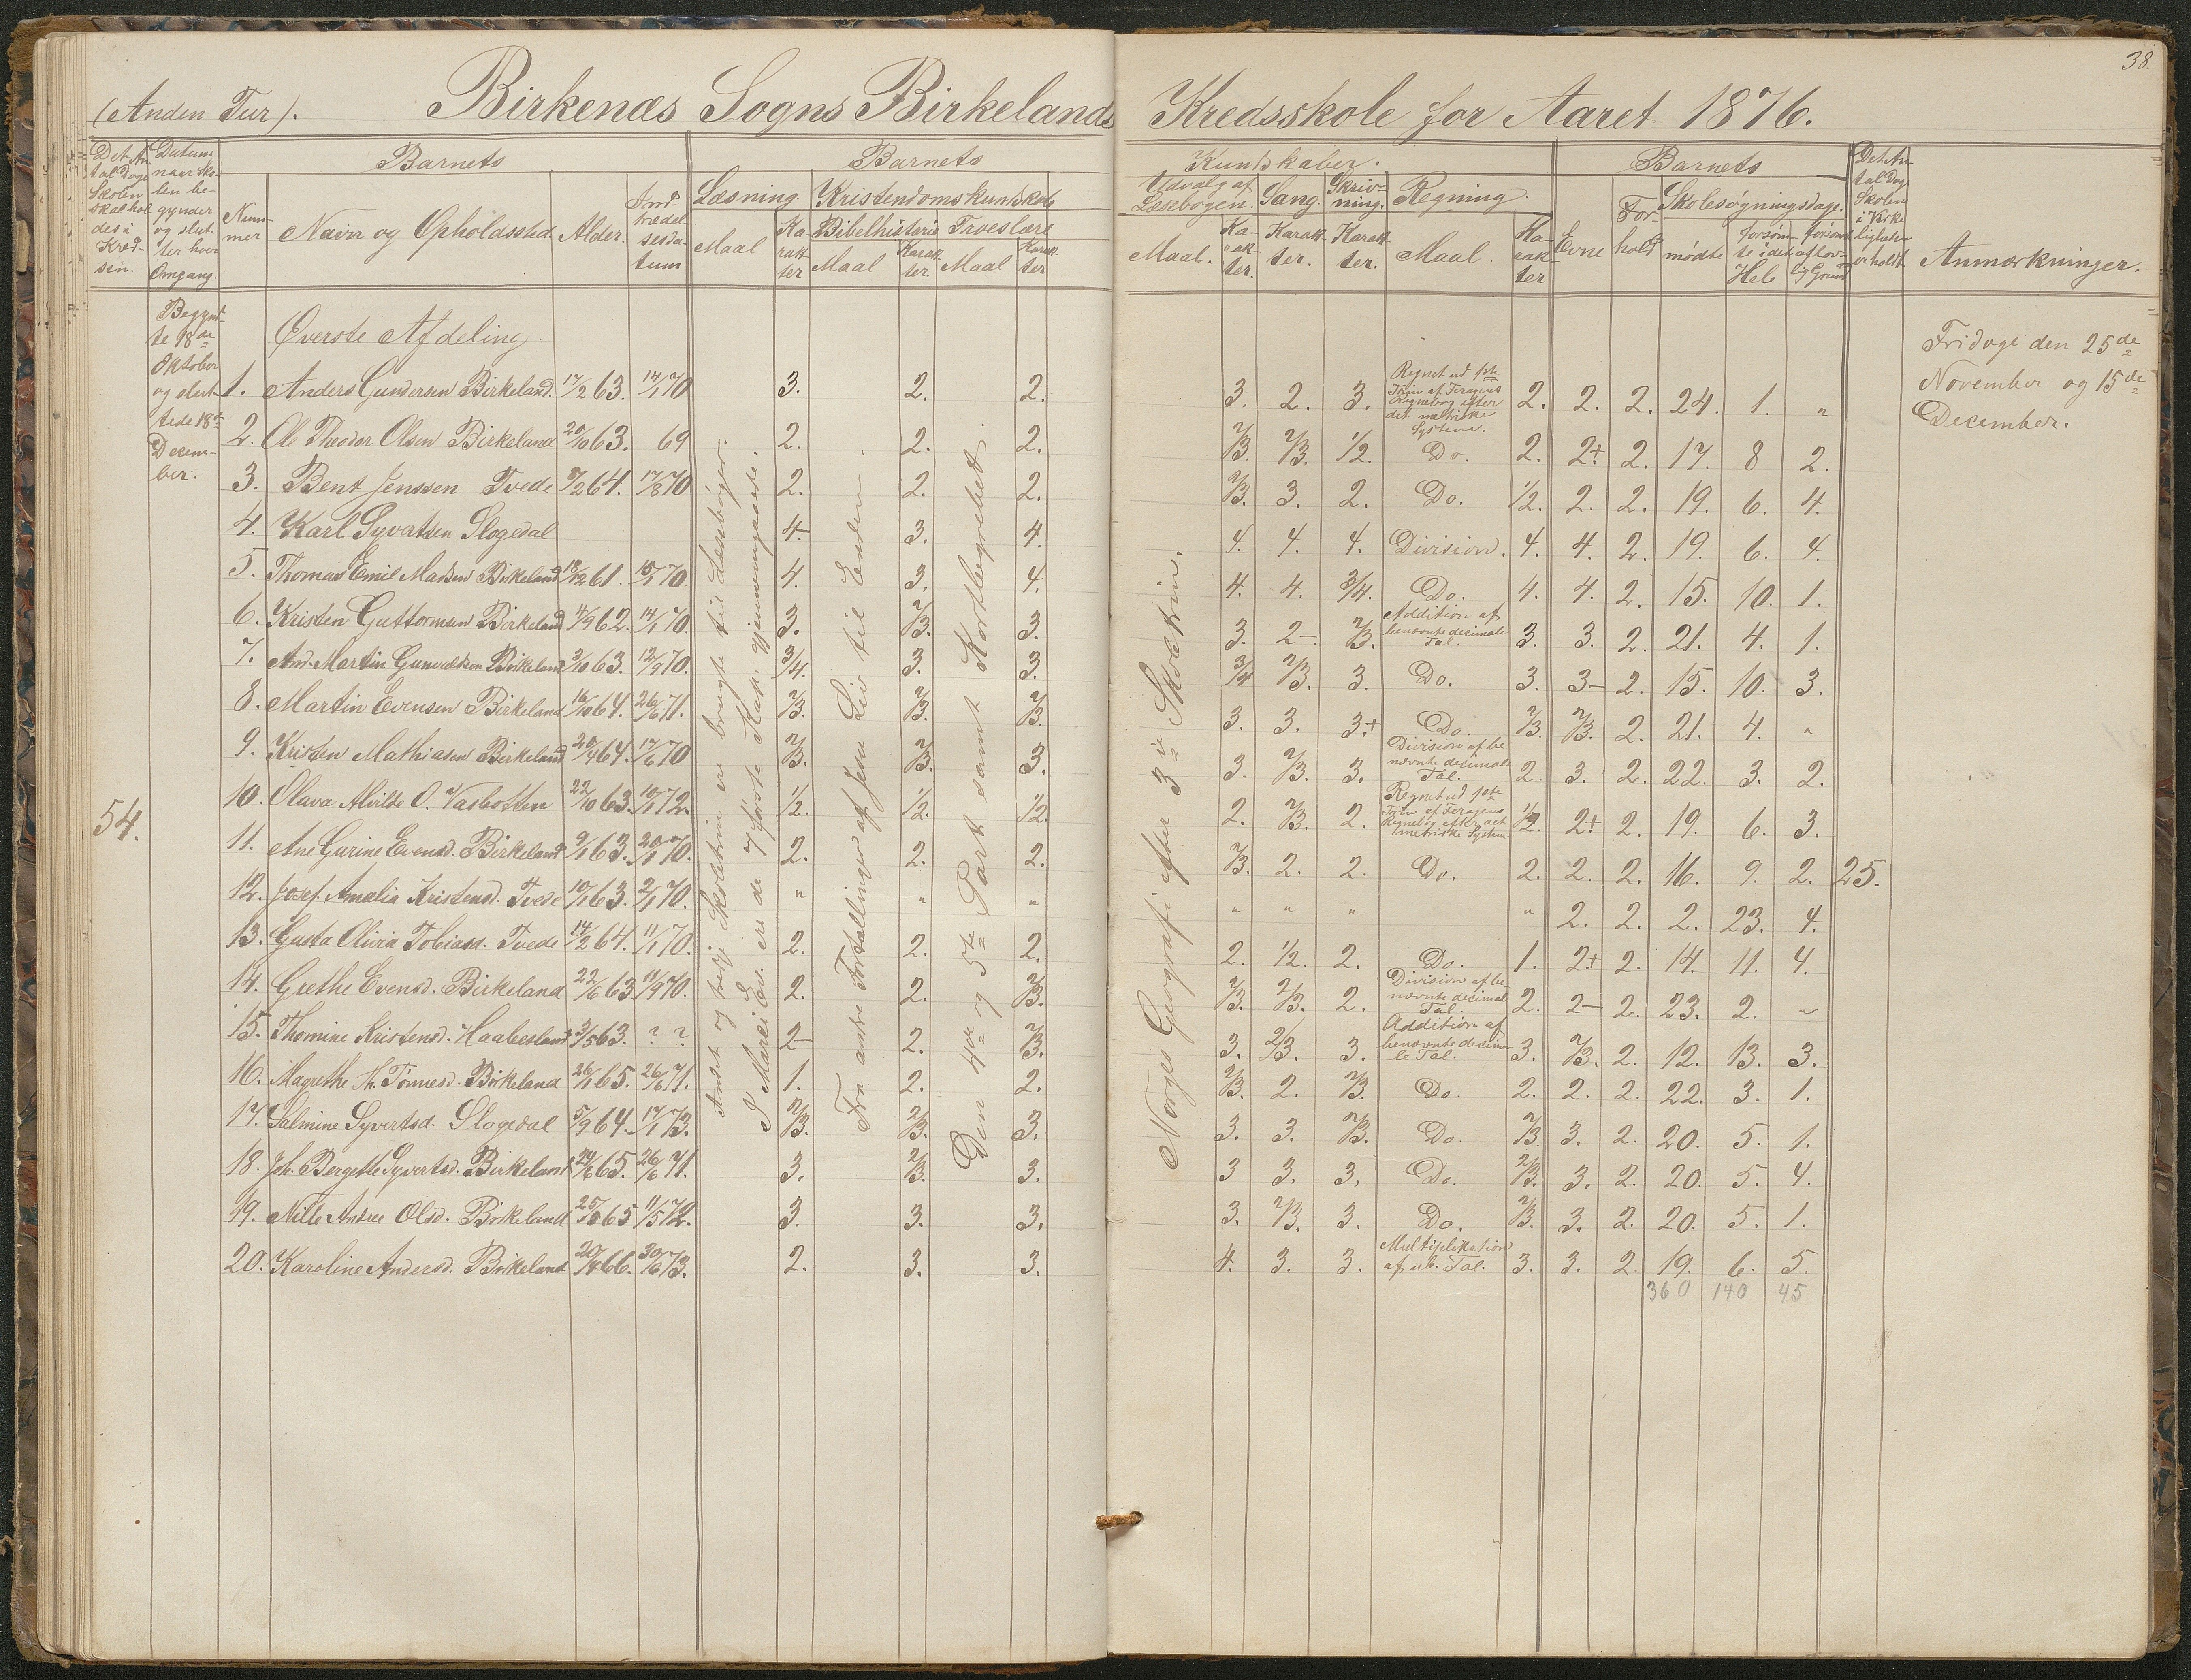 38.
(Anden Tur). Birkenæs Sogns Birkelands Kredsskole for Aaret 1876.
Det Antal Dage Skolen skal holdes i Kredsen.
Datum naar Skolen begynder og slutter hver Omgang.
Barnets
Nummer
Navn og Opholdssted.
Alder.
Indtrædelsesdatum
Barnets
Læsning
Maal
Karakter
Kristendomskundskab
Bibelhistorie
Maal
Karakter.
Troeslære
Maal
Karakter
Kundskaber.
Udvalg af Læsebogen.
Maal.
Karakter.
Sang.
Karakter.
Skrivning.
Karakter.
Regning.
Maal.
Karakter
Barnets
Evne
Forhold
Skolesøgningsdage.
mødte
forsømte i det Hele
forsømt af lovlig Grund
Det Antal Dage Skolen i Virkeligheden er holdt
Anmærkninger.
54.
Begynt-
te 18de
Oktober
og slut-
tede 18de
Decem-
ber.
Øverste Afdeling.
1. Anders Gundersen Birkeland. 17/2 63. 14/1 70 3. 2. 2. 3. 2. 3. Regnet ud 1ste Trin af Feragens Regnebog efter det metriske System. 2. 2. 2. 24. 1. "
2. Ole Theodor Olsen Birkeland 20/10 63. 69 2. 2. 2. 2/3. 2/3. 1/2. Do. 2. 2+ 2. 17. 8 2.
3. Bent Jenssen Tvede 8/2 64. 17/8 70 2. 2. 2. 2/3. 3. 2. Do. 1/2. 2. 2. 19. 6. 4.
4. Karl Syvertsen Slogedal 4. 3. 4. 4. 4. 4. Division. 4. 4. 2. 19. 6. 4.
5. Thomas Emil Madsen Birkeland 18/12 61. 15/1 70. 4. 3. 4. 4. 4. 3/4. Do. 4. 4. 2. 15. 10. 1.
6. Kristen Guttormsen Birkeland 4/9 62. 14/1 70. 3. 2/3. 3. 3. 2- 2/3. Addition af benævnte decimale Tal. 3. 3. 2. 21. 4. 1.
7. And. Martin Gunvaldsen Birkeland 3/10 63. 12/9 70. 3/4. 3. 3. 3/4 2/3. 3. Do. 3. 3- 2. 15. 10. 3.
8. Martin Evensen Birkeland 16/10 64. 26/6 71. 2/3. 2/3. 2/3. 3. 3. 3+ Do. 2/3. 2/3. 2. 21. 4. "
9. Kristen Mathiasen Birkeland 20/4 64. 17/6 70 2/3. 2/3. 3. 3. 2/3. 3. Division af benævnte decimale Tal. 2. 3. 2. 22. 3. 2.
10. Olava Alvilde O. Vasbotten 22/10 63. 10/1 72. 1/2. 1/2. 1/2. 2. 2/3. 2. Regnet ud 1ste Trin af Feragens Regnebog eft. det metriske System. 1/2. 2+ 2. 19. 6. 3.
11. Ane Gurine Evensd. Birkeland 9/1 63. 20/1 70. 2. 2. 2. 2/3. 2. 2. Do. 2. 2. 2. 16. 9. 2. 25.
12. Josef. Amalia Kristensd. Tvede 10/1 63. 2/1 70. " " " " " " " 2. 2. 2. 23. 4.
13. Gusta Olivia Tobiasd. Tvede 14/2 64. 11/1 70. 2. 2. 2. 2. 1/2. 2. Do. 1. 2+ 2. 14. 11. 4.
14. Grethe Evensd. Birkeland 22/6 63 11/9 70. 2. 2. 2/3. 2/3. 2/3. 2. Division af benævnte decimal Tal. 2. 2- 2. 23. 2. "
15. Thomine Kristensd. Haabesland 3/5 63. ? ? 2- 2. 2/3. 3. 2/3. 3. Addition af benævnte decimale Tal. 3. 2/3. 2. 12. 13. 3.
16. Magrethe K. Tomiesd. Birkeland 26/1 65. 26/6 71. 1. 2. 2. 2/3. 2. 2/3. Do. 2. 2. 2. 22. 3. 1.
17. Salmine Syvertsd. Slogedal 5/9 64. 17/1 73. 2/3. 2/3. 3. 3. 3. 2/3. Do. 2/3. 3. 2. 20. 5. 1.
18. Joh. Bergethe Syvertsd. Birkeland 24/6 65. 26/6 71. 3. 2/3. 3. 3 3. 3. Do. 2/3. 3. 2. 20. 5. 4.
19. Nille Andree Olsd. Birkeland 25/8 65 11/5 72. 3. 3. 3. 3. 2/3. 3. Do. 2/3. 3. 2. 20. 5. 1.
20. Karoline Andersd. Birkeland 20/4 66. 30/6 73. 2. 3. 3. 4. 3. 3. Multiplikation af ub. Tal. 3. 3. 2. 19. 6. 5.
360 140 45
Andet og tredje Skoletrin ere brugte til Læsebøger.
I Marci Ev. ere de 7 første Kap. gjennemgaaede.
Fra andre Fortællinger af Jesu Liv til Enden.
Den 4de og 5te Part samt Kortbegrebet.
Norges Geografi efter 3die Skoletrin.
Fridage den 25de
November og 15de
December.